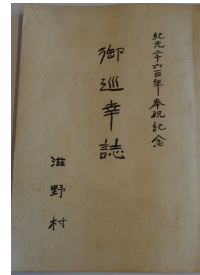 紀元二千六百年奉祝記念
御巡幸誌
滋野村